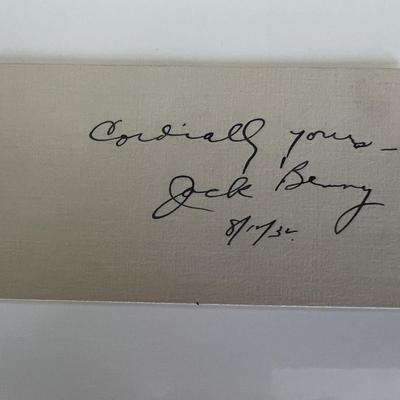 Cordially yours –
Jack Benny